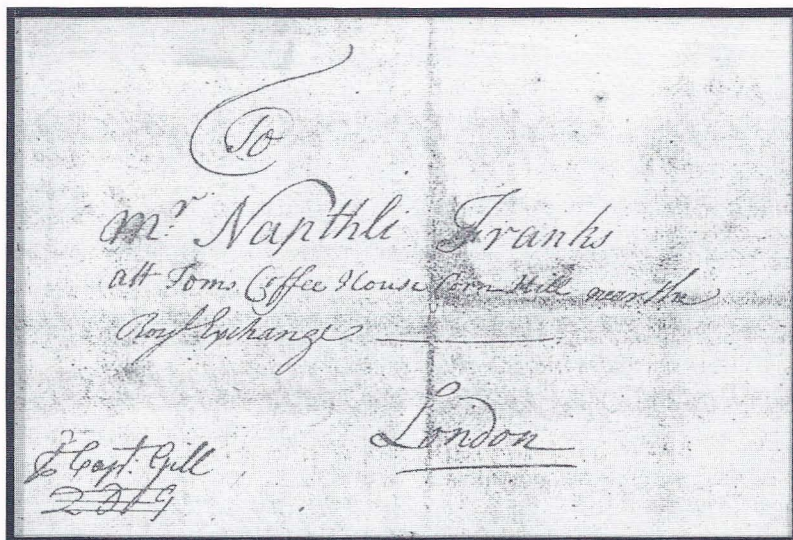 To
Mr Napthli Franks
att Toms Coffee House Corn Hill near the
Royl Exchange
London
Capt. Gill